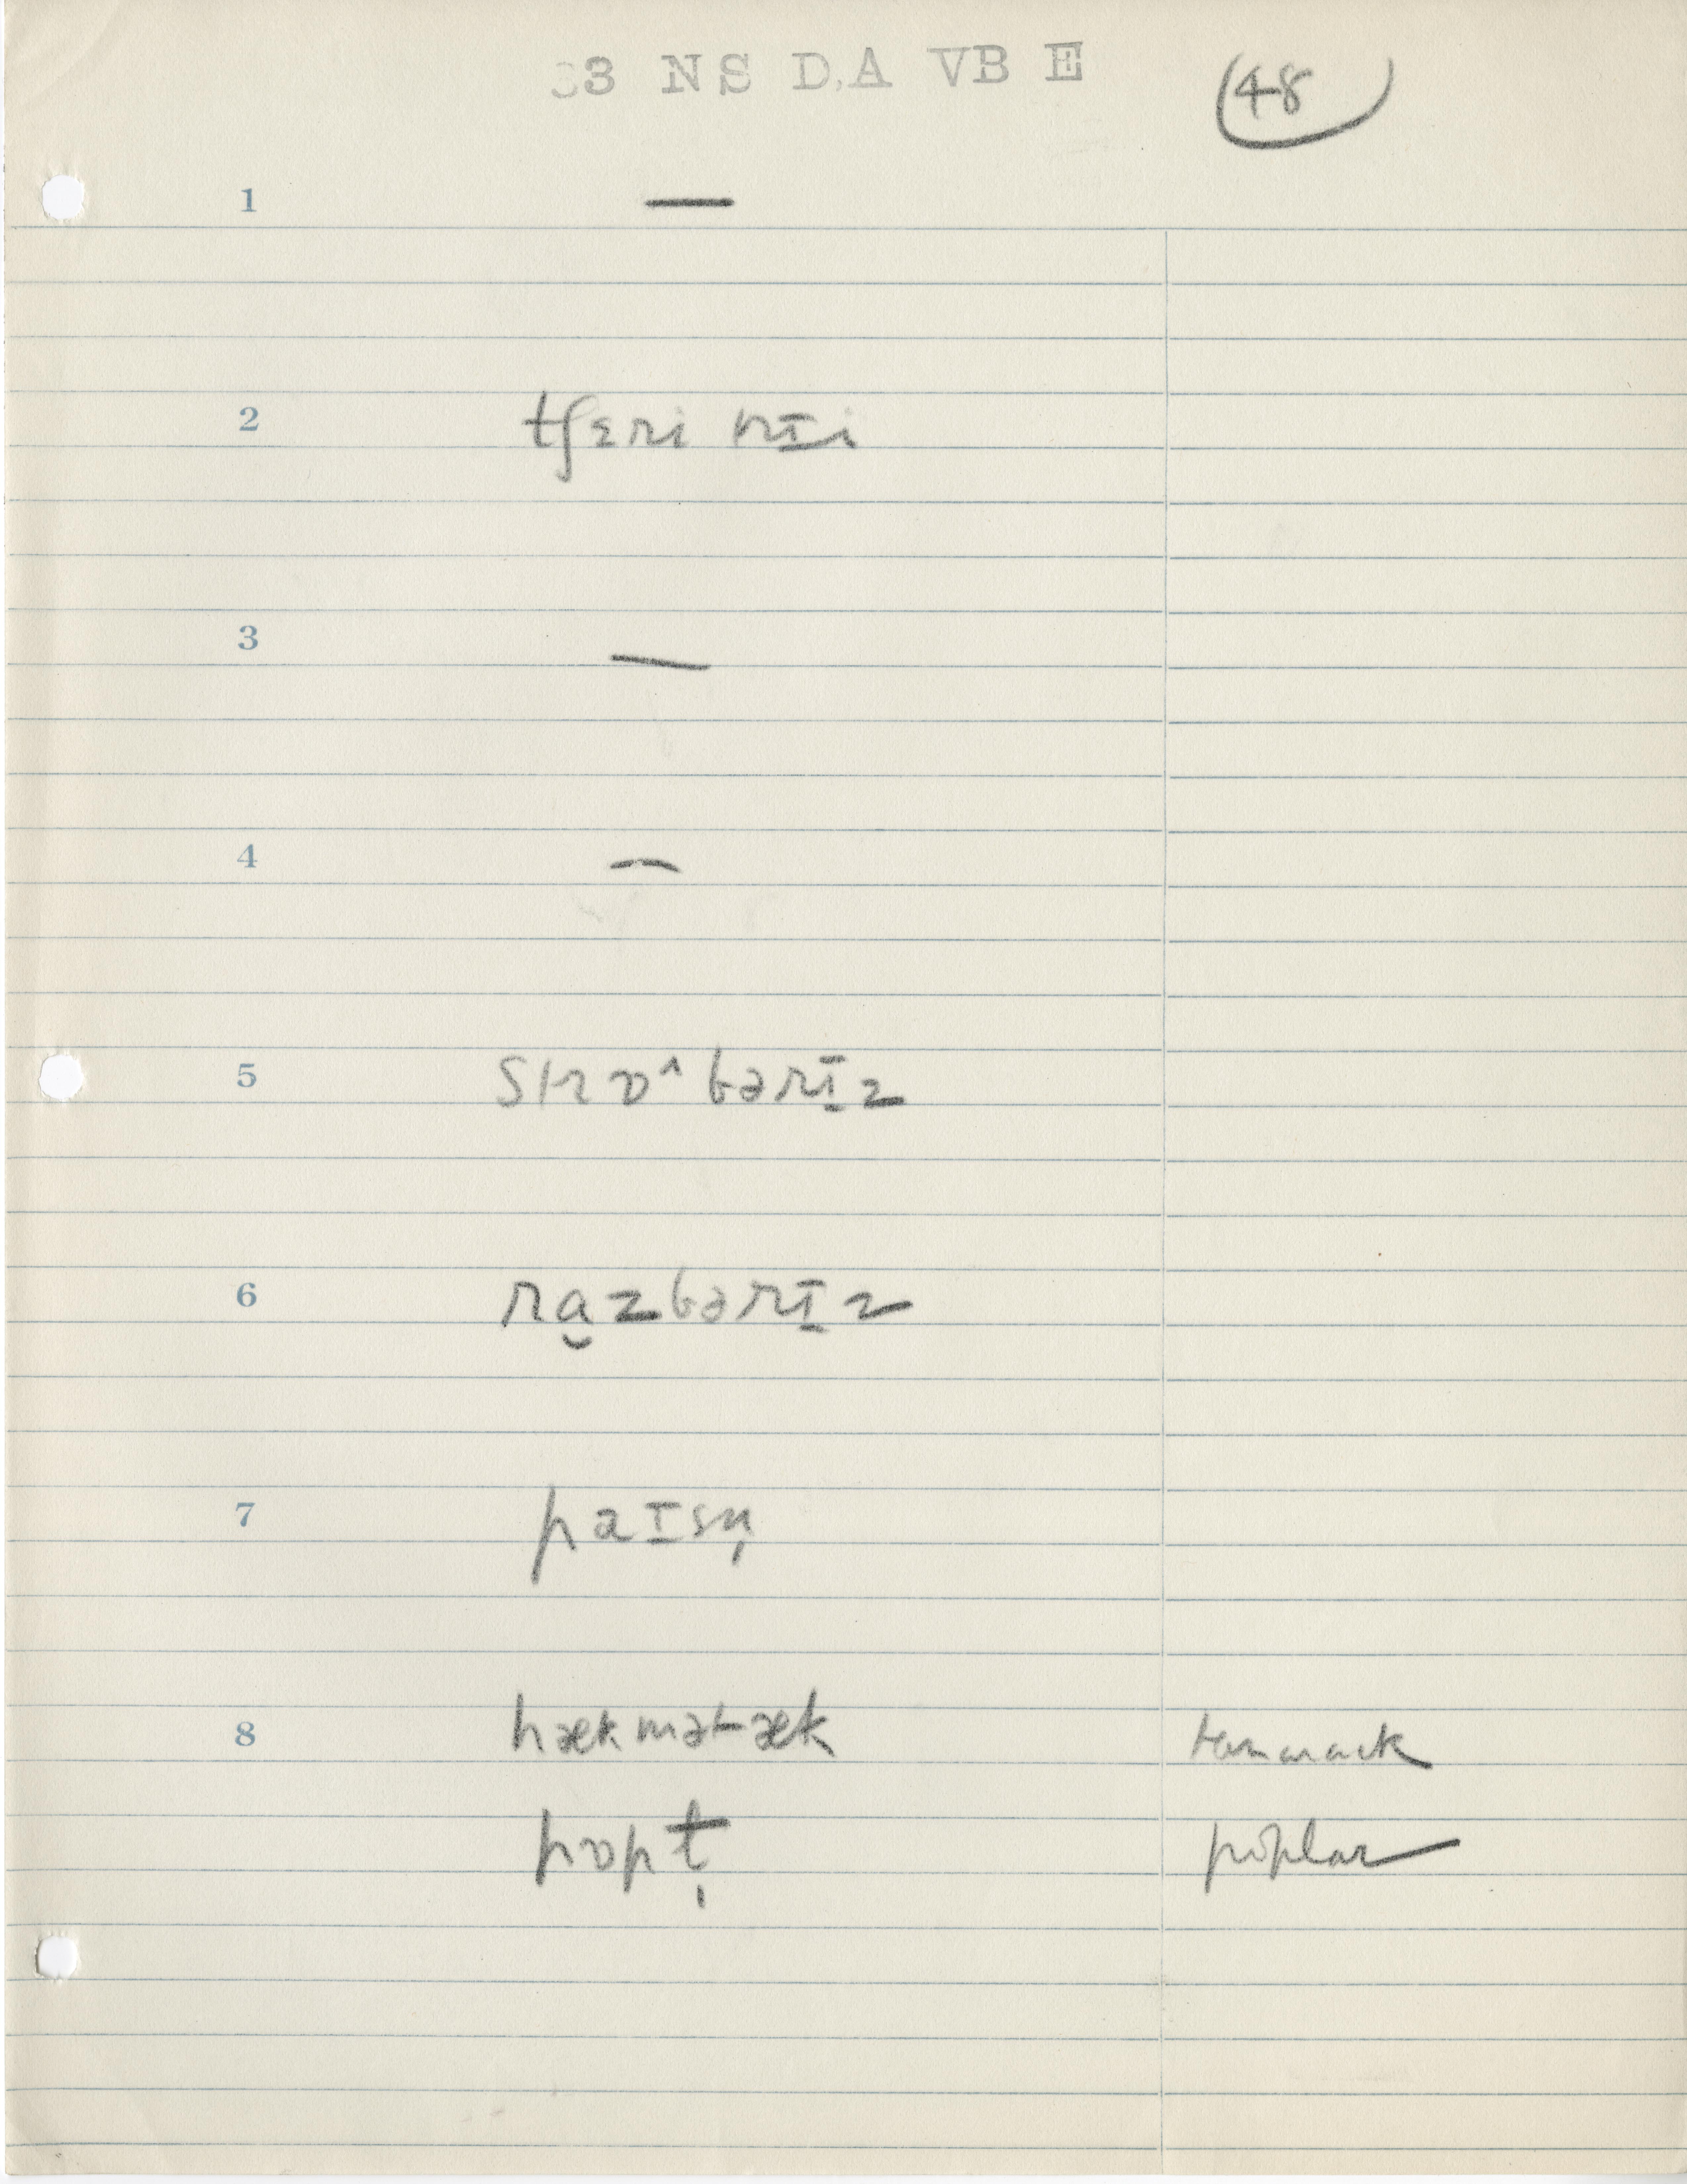 33 NS D.A VB E
48
1 —
2 tʃɛri trɪ̱i
3 —
4 —
5 strɒ^bərɪ̱z
6 ra̮zbərɪ̱z
7 paɪsn̩
8 hækmətæk tamarack
pɒpt̩ pŏplar